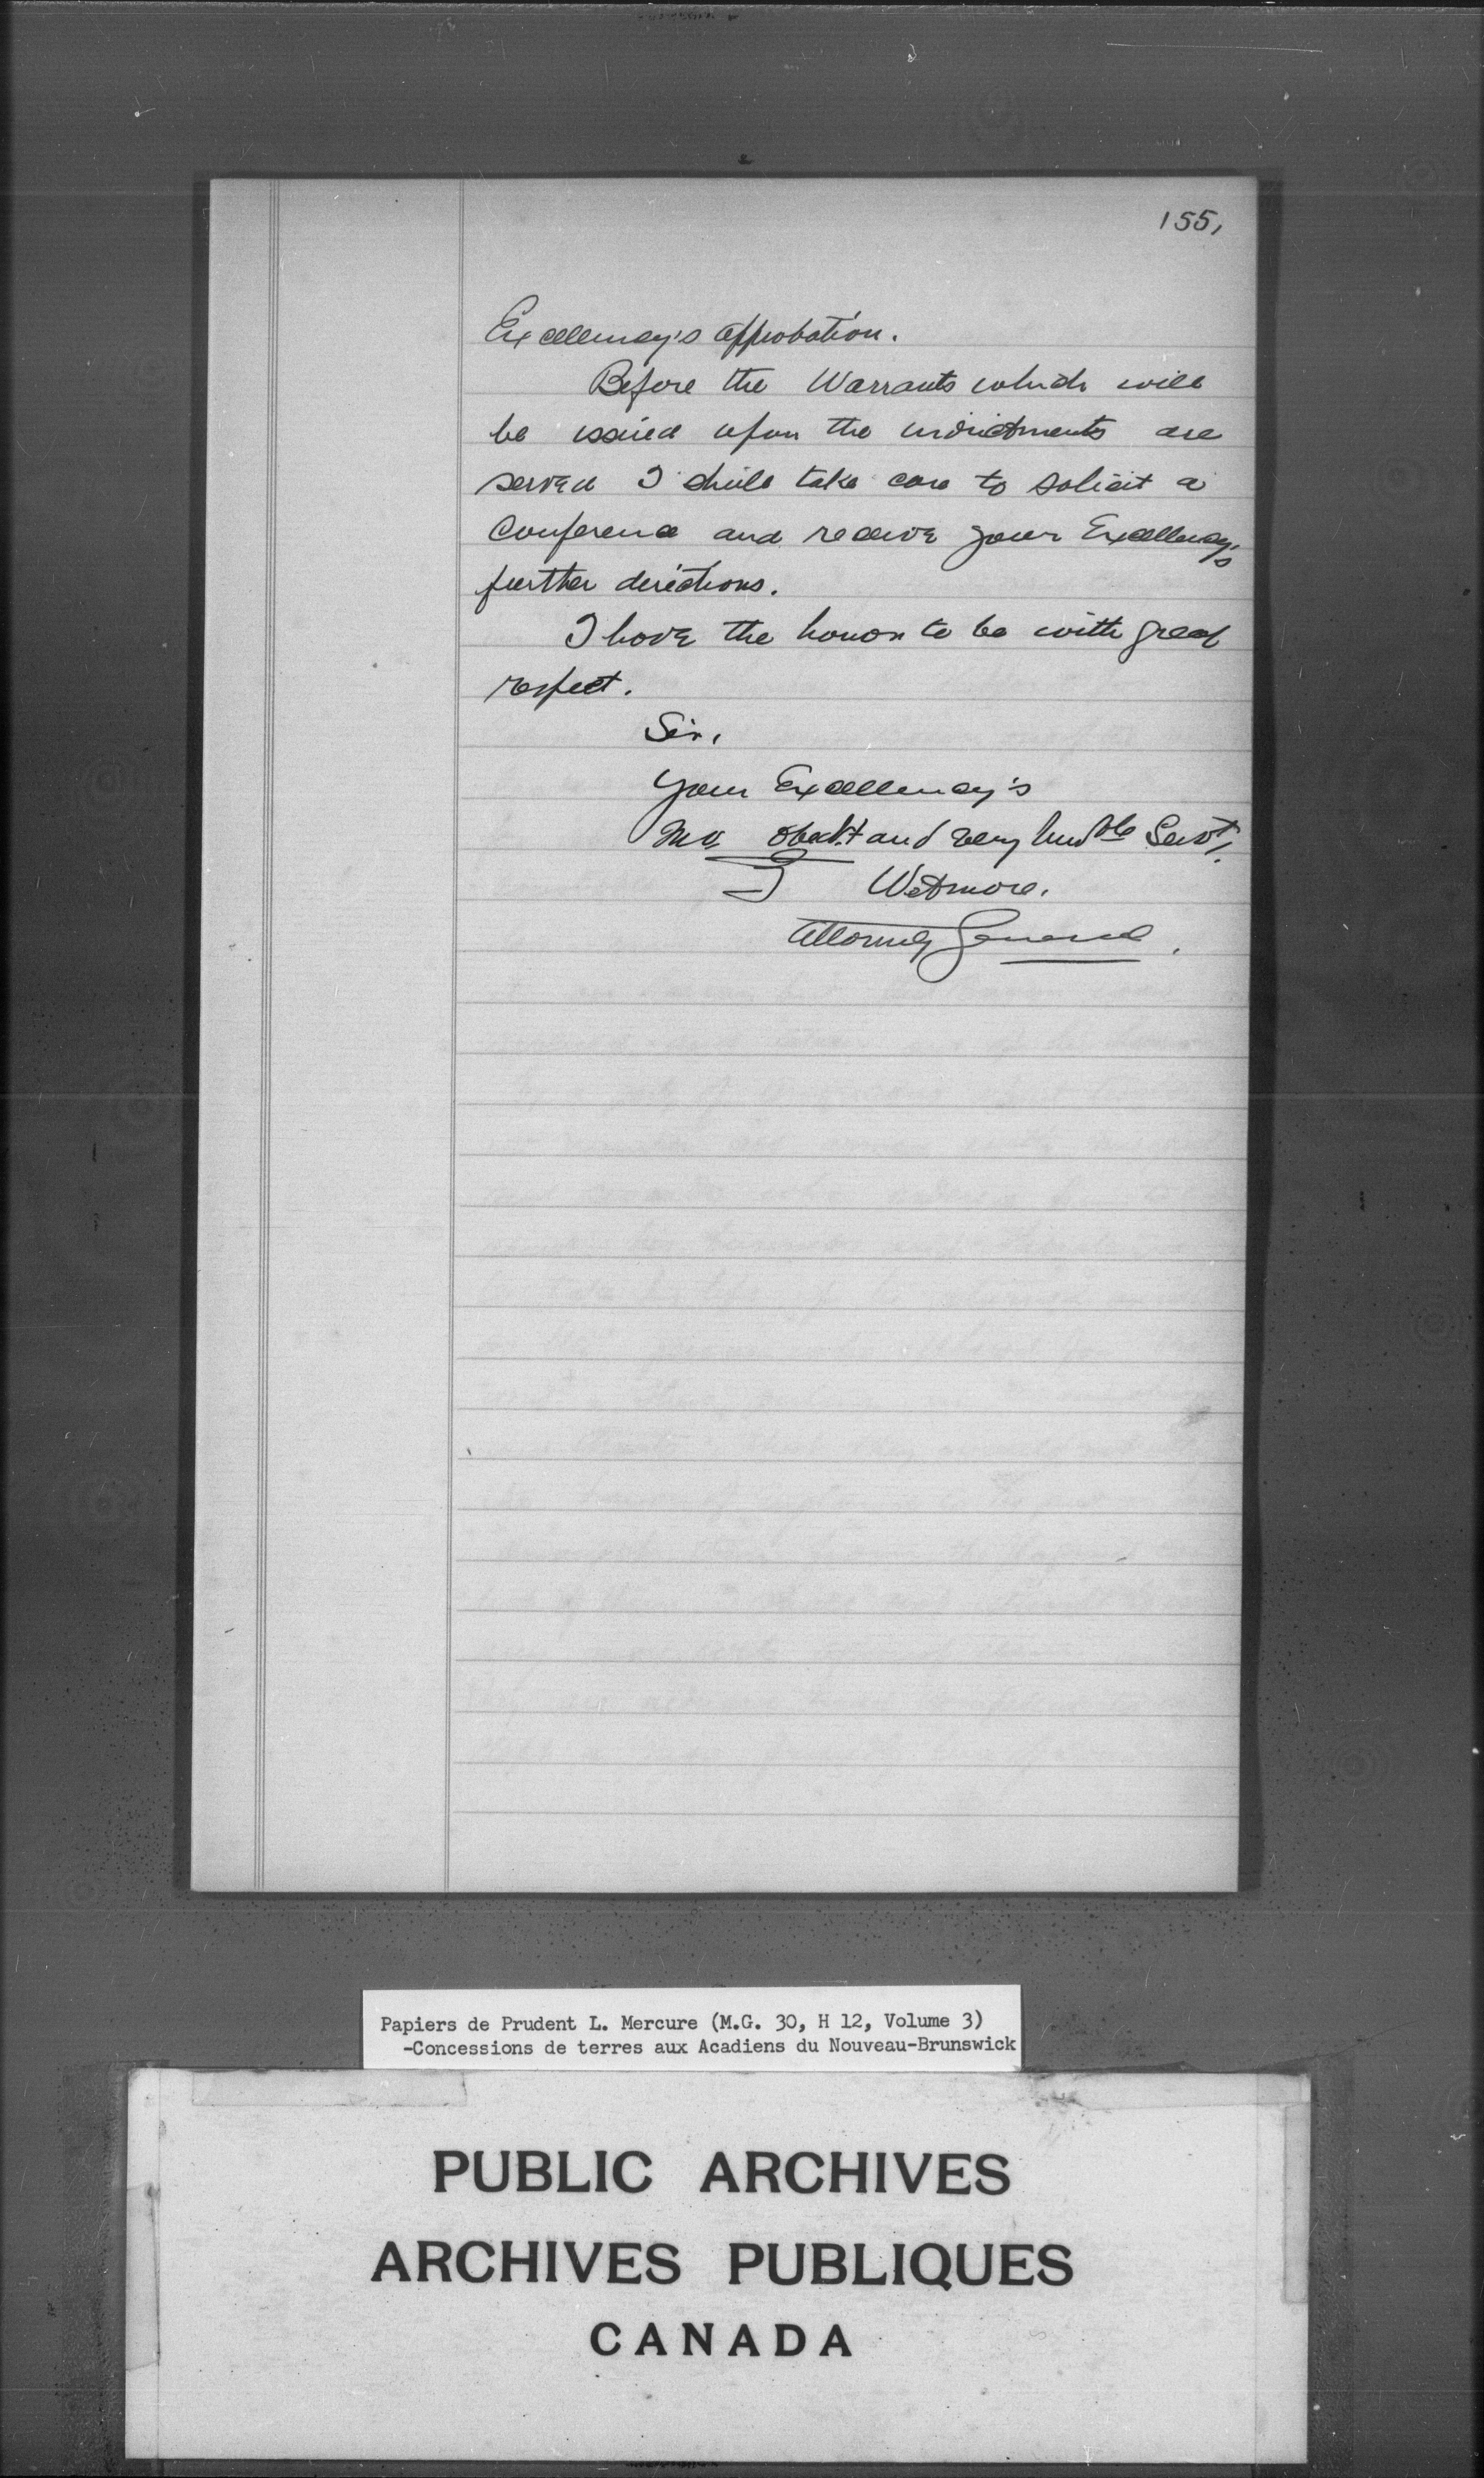 155,
Excellency's approbation.
Before the Warrants which will
be issued upon the indictments are
served I shall take care to solicit a
Conference and receive your Excellency's
further directions.
I have the honor to be with great
respect.
Sir,
Your Excellency's
Mo. obedt and very humble Servt.
T Wetmore.
Attorney General.
Papiers de Prudent L. Mercure (M.G. 30, H 12, Volume 3)
-Concessions de terres aux Acadiens du Nouveau-Brunswick
PUBLIC ARCHIVES
ARCHIVES PUBLIQUES
CANADA